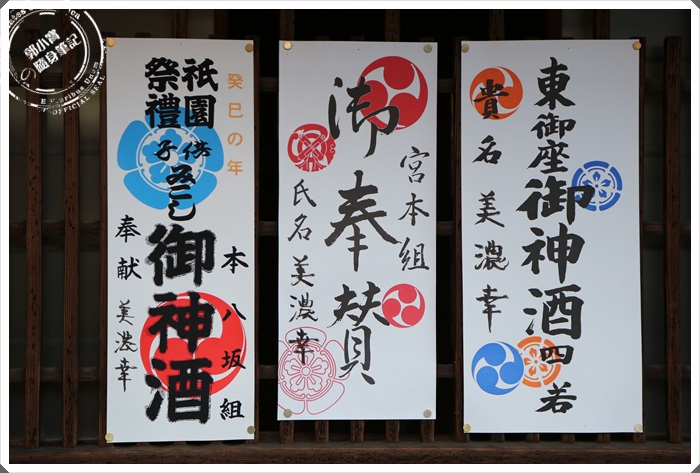 郭小寶
の隨身筆記
E Pluribus Unum
OFFICIAL SEAL
東御座御神酒四若
貴名 美濃幸
宮本組
御奉賛
氏名 美濃幸
癸巳の年
祇園
祭禮
子供みこし
御神酒
本八坂組
奉献 美濃幸